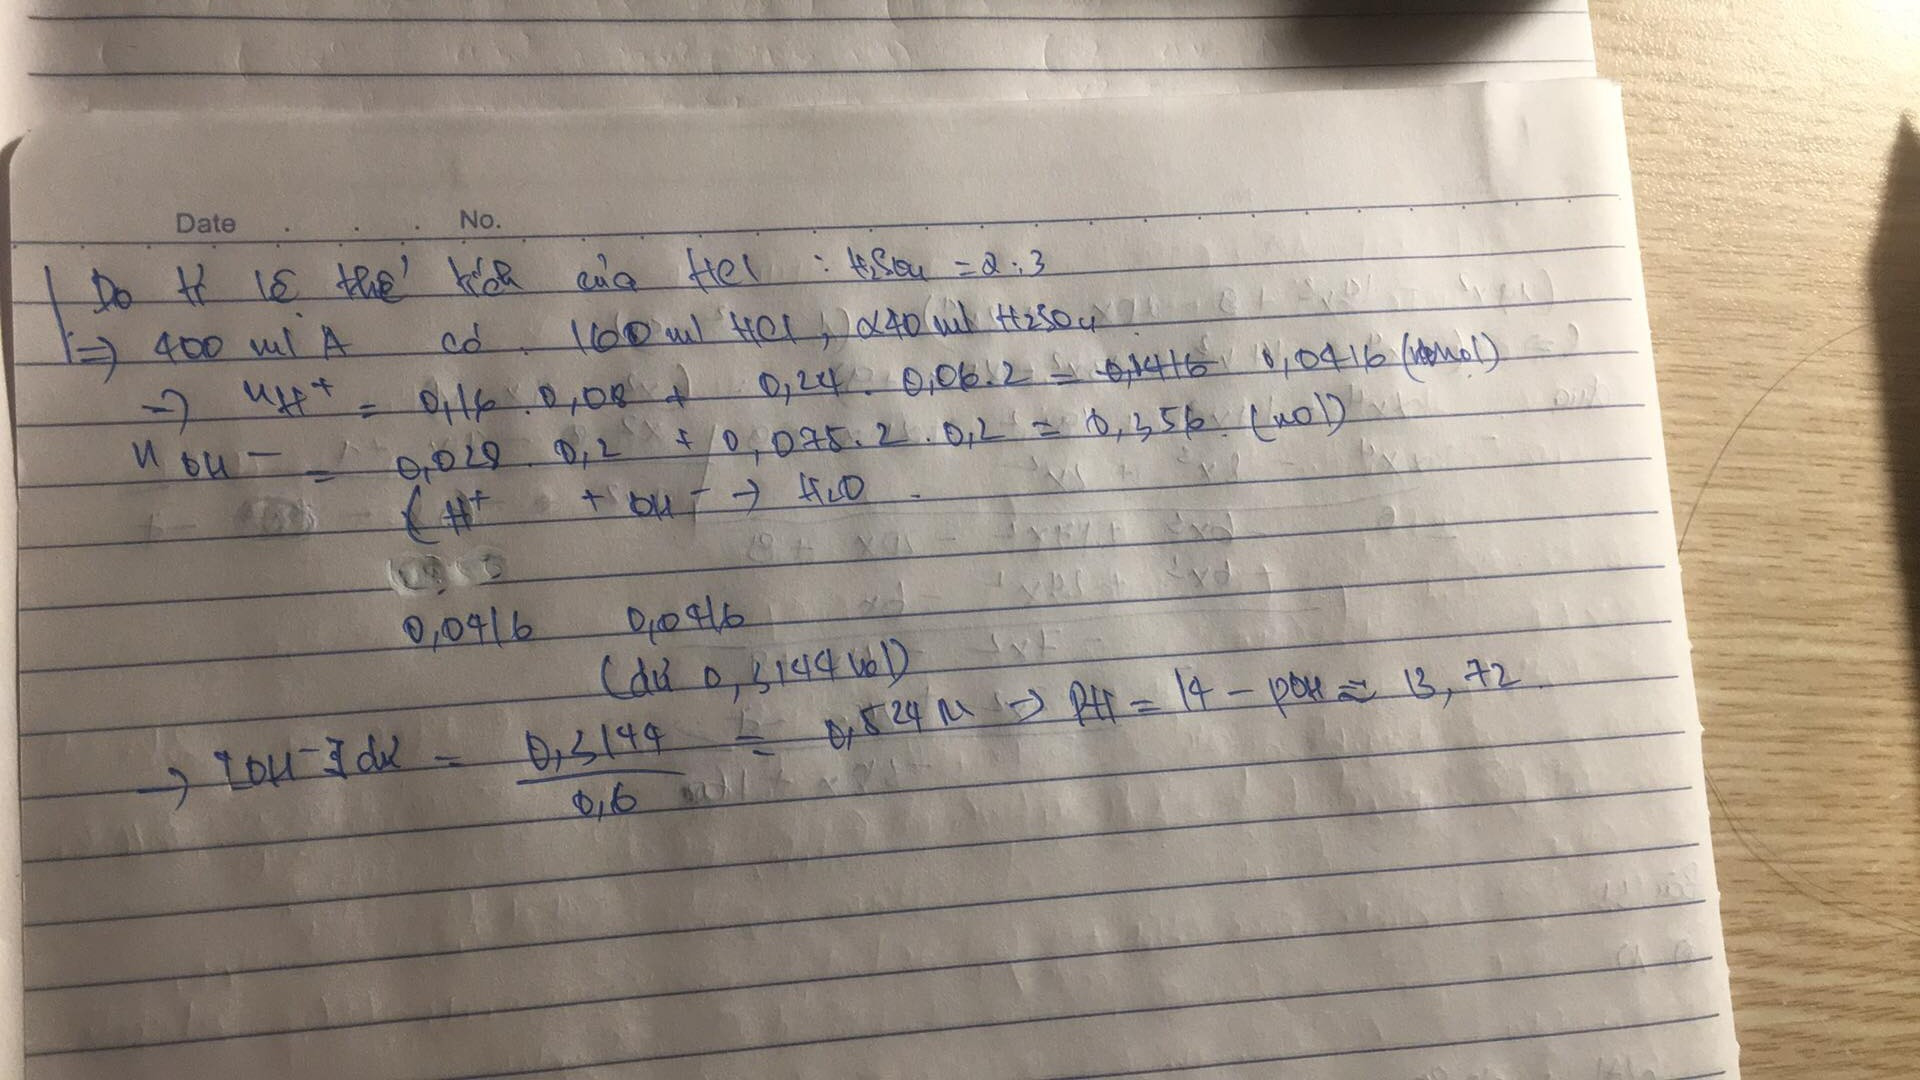 Date No.
Do tỉ lệ thể tích của HCl : H2SO4 = 2:3
=> 400 ml A có 160 ml HCl, 240 ml H2SO4
-> nH+ = 0,16.0,08 + 0,24.0,06.2 = 0,1416 0,0416 (mol)
nOH- = 0,028.0,2 + 0,075.2.0,2 = 0,356 (mol)
( H+ + OH- -> H2O
0,0416 0,0416
(dư 0,3144 mol)
-> [OH-] dư = 0,3144 / 0,6 = 0,524 M => PH = 14 - pOH ≈ 13,72